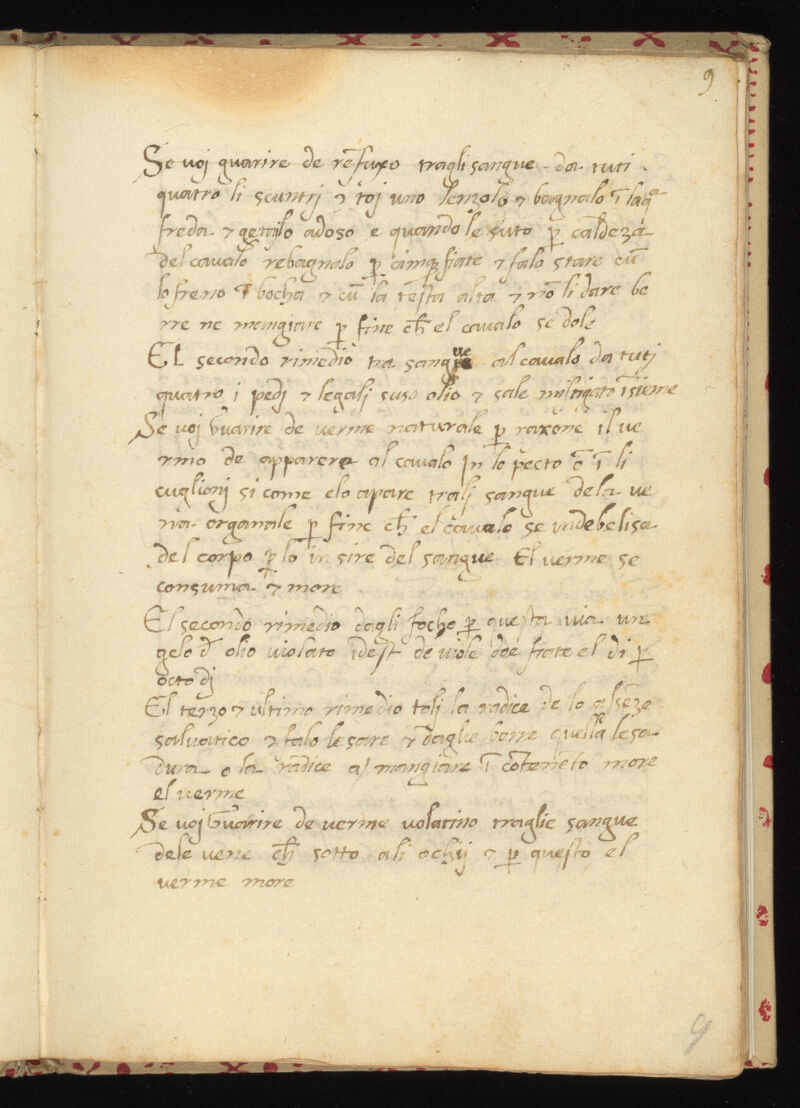 9
Se voj guarire de rēfuxo tragli sangue da tuti
quatro li scuntrj & toj uno lemzolo & bagnalo ī laqª
freda & getalo adoso e quando le suto p̱ caldeza
del cavalo rebagnalo p̱ cimq̄ fiate & falo stare cū
lo freno ī bocha & cū la testa alta & nō li dare be
rre ne mangiare p̱ fine ch̄ el cavalo se dole
El secondo rimedio tra sangue al cavalo da tutj
quatro i pedj & legalj suso olio & sale mistigato īsieme
Se voj Guarire de verme naturale p̱ raxone il ve
rmo de apparere al cavalo in lo pecto o ī li
cuglionj si come elo apare tralj sangue dela ve
na organale p̱ fine ch̄ el cavalo se indebelisa
del corpo p̱ lo in sire del sangue El verme se
consuma & more
El secondo rimedio dagli focho p̱ questa via un
gelo d̄ olio violato idest de viole doe fiate el di p̱
octo dj
El terzo & ultimo rimedio tolj la radice de lo asēze
salvatico & falo lesare & daglie borre quella lesa
dura o la radice a mangiare ī cōtenēto more
el verme
Se voj Guarire de verme volatino traglie sangue
dele vene ch̄ sotto ali ochij & p̱ questo el
verme more
9